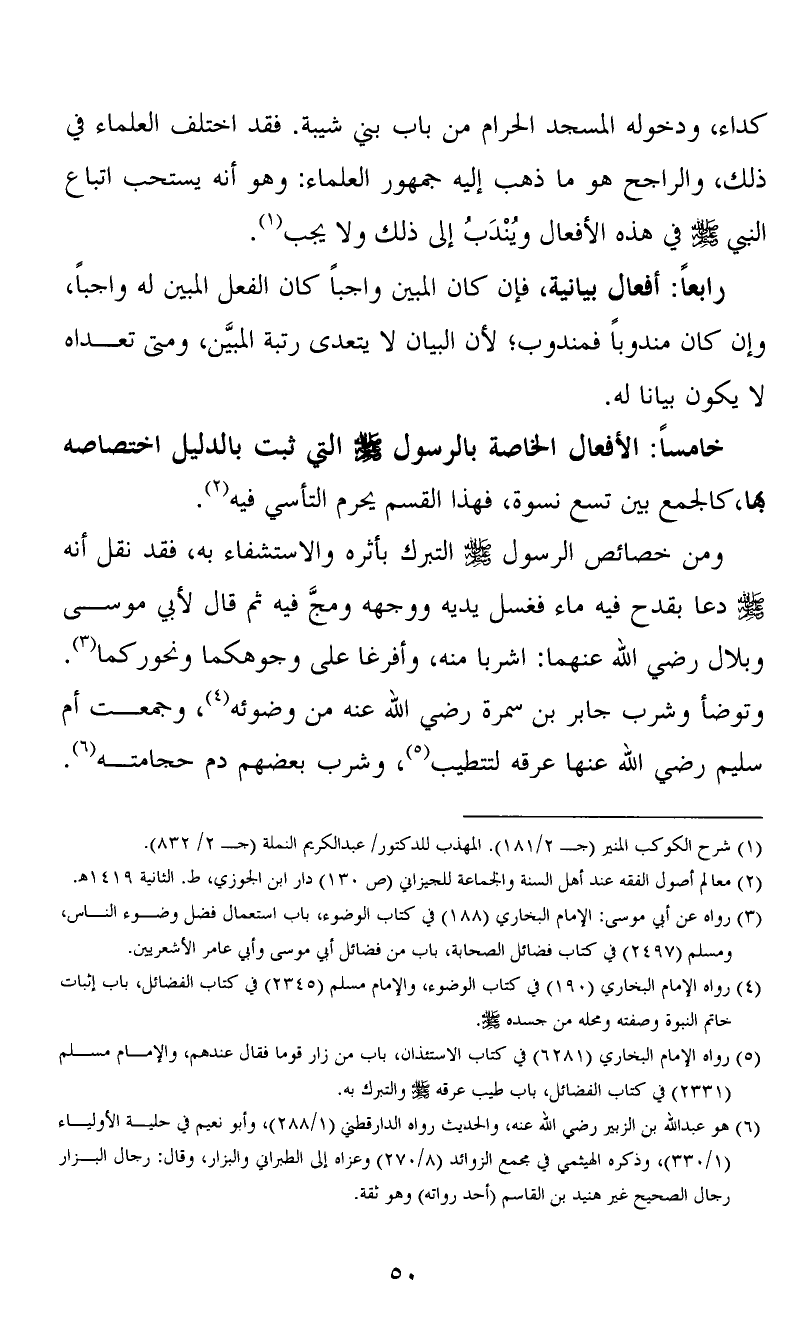 كداء، ودخوله المسجد الحرام من باب بني شيبة. فقد اختلف العلماء في
ذلك، والراجح هو ما ذهب إليه جمهور العلماء: وهو أنه يستحب اتباع
النبي ﷺ في هذه الأفعال ويُنْدَبُ إلى ذلك ولا يجب(١).
رابعاً: أفعال بيانية، فإن كان المبين واجباً كان الفعل المبين له واجباً،
وإن كان مندوباً فمندوب؛ لأن البيان لا يتعدى رتبة المبيَّن، ومتى تعـــداه
لا يكون بيانا له.
خامساً: الأفعال الخاصة بالرسول ﷺ التي ثبت بالدليل اختصاصه
بها،كالجمع بين تسع نسوة، فهذا القسم يحرم التأسي فيه(٢).
ومن خصائص الرسول ﷺ التبرك بأثره والاستشفاء به، فقد نقل أنه
ﷺ دعا بقدح فيه ماء فغسل يديه ووجهه ومجَّ فيه ثم قال لأبي موســـى
وبلال رضي الله عنهما: اشربا منه، وأفرغا على وجوهكما ونحوركما(٣).
وتوضأ وشرب جابر بن سمرة رضي الله عنه من وضوئه(٤)، وجمعـــت أم
سليم رضي الله عنها عرقه لتتطيب(٥)، وشرب بعضهم دم حجامتـــه(٦).
(١) شرح الكوكب المنير (جـــ ١٨١/٢). المهذب للدكتور/ عبدالكريم النملة (جـــ ٢/ ٨٣٢).
(٢) معالم أصول الفقه عند أهل السنة والجماعة للجيزاني (ص ١٣٠) دار ابن الجوزي، ط. الثانية ١٤١٩هـ.
(٣) رواه عن أبي موسى: الإمام البخاري (١٨٨) في كتاب الوضوء، باب استعمال فضل وضـــوء النـــاس،
ومسلم (٢٤٩٧) في كتاب فضائل الصحابة، باب من فضائل أبي موسى وأبي عامر الأشعريين.
(٤) رواه الإمام البخاري (١٩٠) في كتاب الوضوء، والإمام مسلم (٢٣٤٥) في كتاب الفضائل، باب إثبات
خاتم النبوة وصفته ومحله من جسده ﷺ.
(٥) رواه الإمام البخاري (٦٢٨١) في كتاب الاستئذان، باب من زار قوما فقال عندهم، والإمـــام مســـلم
(٢٣٣١) في كتاب الفضائل، باب طيب عرقه ﷺ والتبرك به.
(٦) هو عبدالله بن الزبير رضي الله عنه، والحديث رواه الدارقطني (٢٨٨/١)، وأبو نعيم في حليـــة الأوليـــاء
(٣٣٠/١)، وذكره الهيثمي في مجمع الزوائد (٢٧٠/٨) وعزاه إلى الطبراني والبزار، وقال: رجال البـــزار
رجال الصحيح غير هنيد بن القاسم (أحد رواته) وهو ثقة.
٥٠